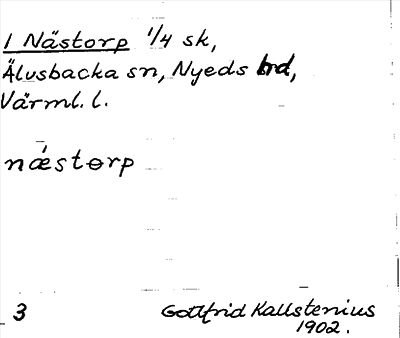 1 Nästorp 1/4 sk,
Älvsbacka sn, Nyeds hrd,
Värml. l.
næ´storp
3
Gottfrid Kallstenius
1902.